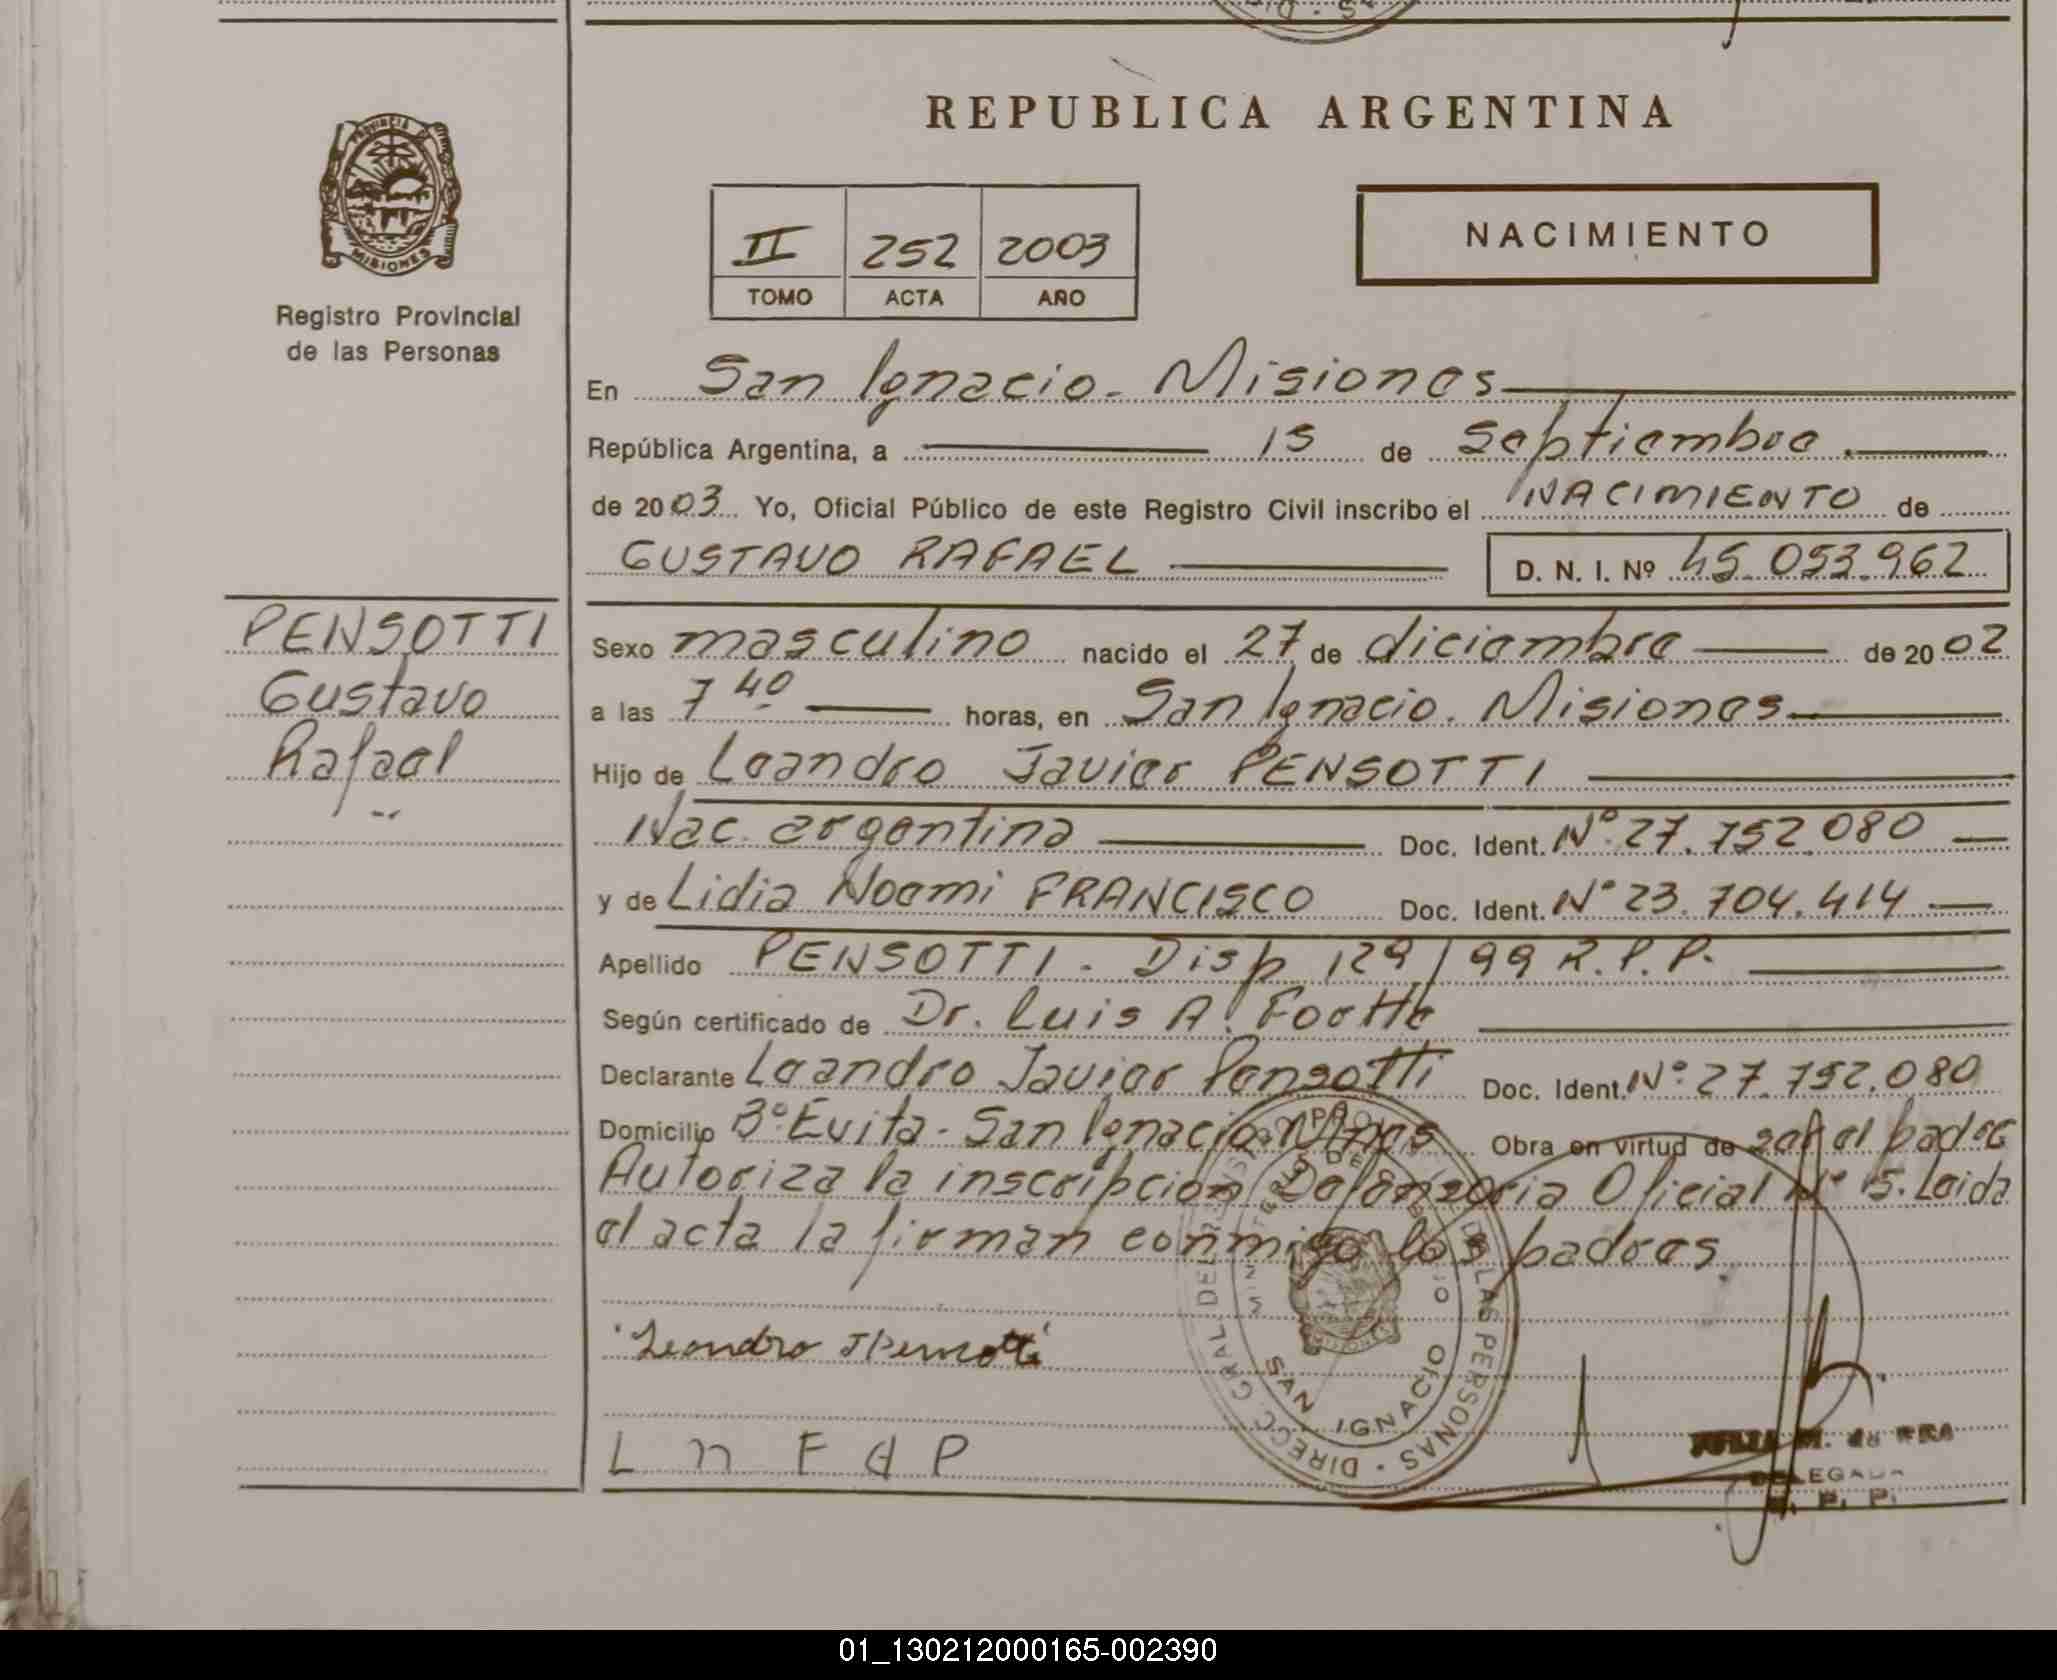 REPUBLICA ARGENTINA
PROVINCIA DE
MISIONES
Registro Provincial
de las Personas
II 252 2003
TOMO ACTA AÑO
NACIMIENTO
En San Ignacio - Misiones
República Argentina, a 15 de Septiembre
de 2003 Yo, Oficial Público de este Registro Civil inscribo el NACIMIENTO de
GUSTAVO RAFAEL D. N. I. Nº 45.053.962
PENSOTTI
Gustavo
Rafael
Sexo masculino nacido el 27 de diciembre de 2002
a las 7 40 horas, en San Ignacio. Misiones
Hijo de Leandro Javier PENSOTTI
Nac. argentina Doc. Ident. Nº 27.752.080
y de Lidia Noemi FRANCISCO Doc. Ident. Nº 23.704.414
Apellido PENSOTTI. Disp 129/99 R.P.P.
Según certificado de Dr. Luis A.
Declarante Leandro Javier Pensotti Doc. Ident. Nº 27.752.080
Domicilio Bº Evita - San Ignacio Mnes Obra en virtud de ser el padre
Autoriza la inscripción Defensoria Oficial Nº 15. Leida
el acta la firman conmigo los padres
Leandro J Pensotti
L n F d P
DIRECC. GRAL. DEL REGISTRO PROVINCIAL DE LAS PERSONAS
MINISTERIO DE GOBIERNO
MISIONES
SAN IGNACIO
JULIA M. de
DELEGADA
R. P. P.
01_130212000165-002390